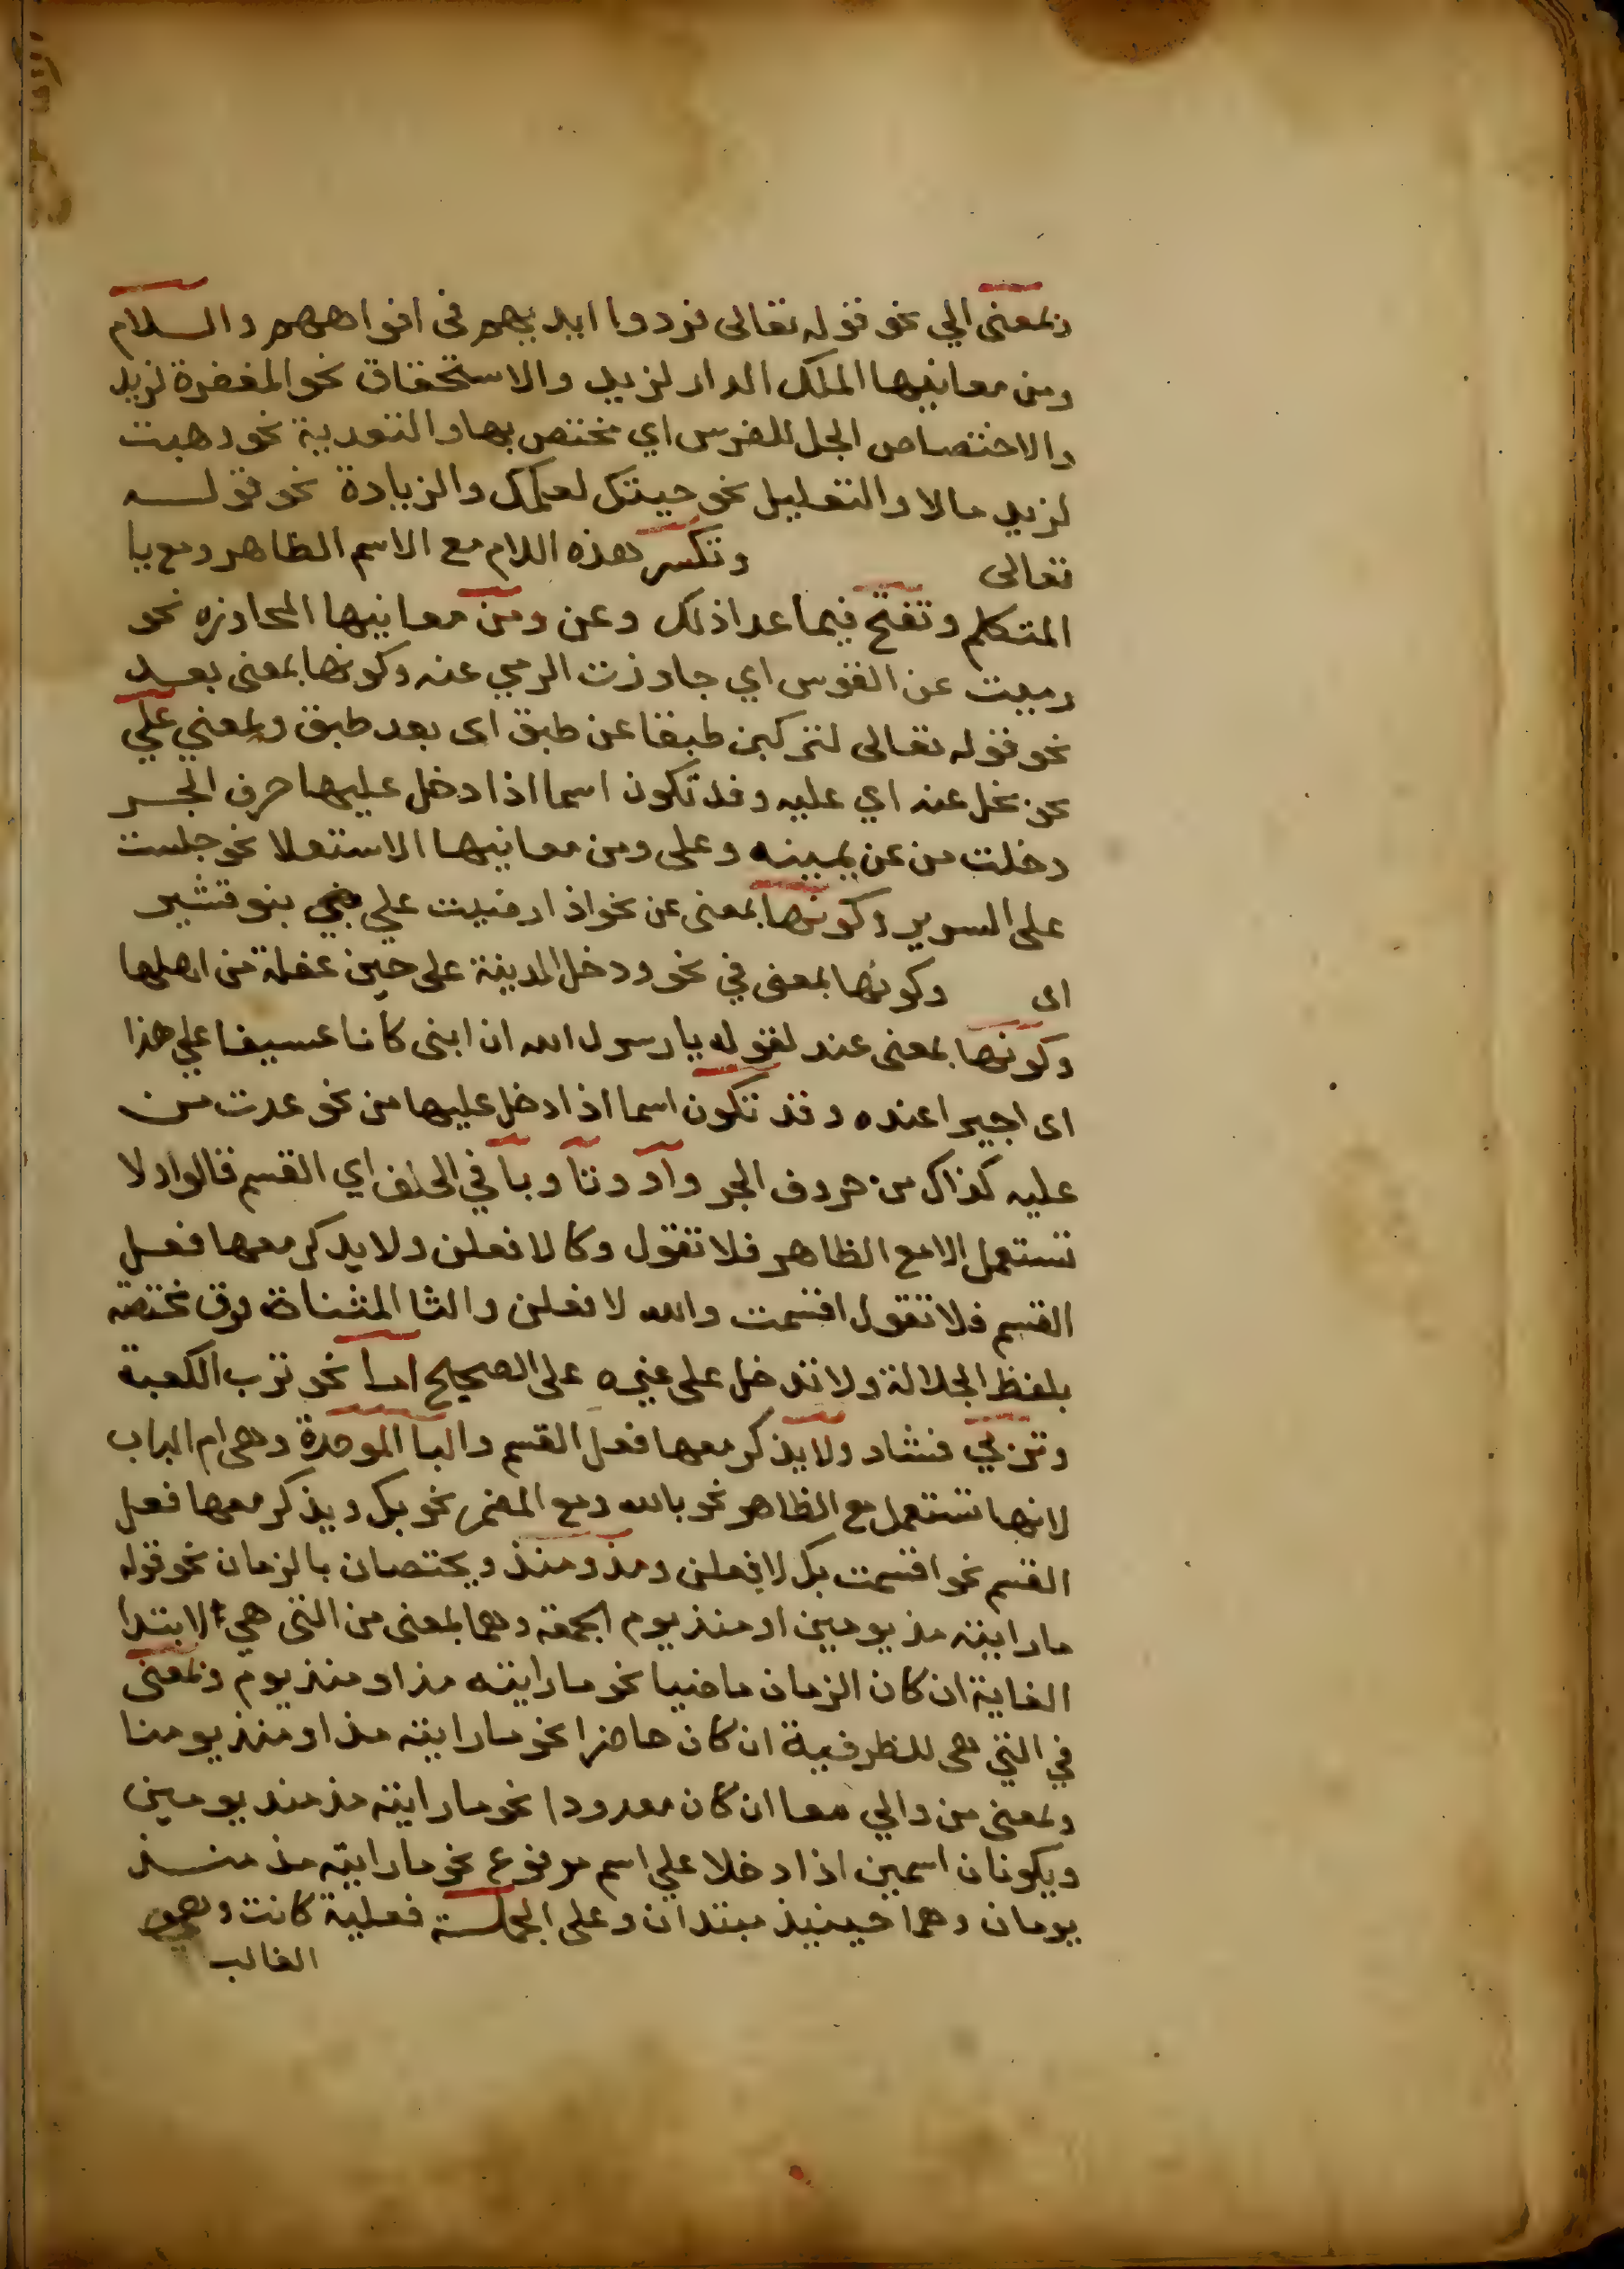 وبمعنى الي نحو قوله تعالى فردوا ايديهم في افواههم واللام
ومن معانيها الملك الدار لزيد والاستحقاق نحو المغفرة لزيد
والاختصاص الجل للفرس اي مختص بها والتعدية نحو وهبت
لزيد مالا والتعليل نحو جيتك لعلمك والزيادة نحو قوله
تعالى وتكسر هذه اللام مع الاسم الظاهر ومع يا
المتكلم وتفتح فيما عدا ذلك وعن ومن معانيها المجاوزه نحو
رميت عن القوس اي جاوزت الرمي عنه وكونها بمعنى بعد
نحو قوله تعالى لتركبن طبقا عن طبق اى بعد طبق وبمعني علي
نحو يبخل عنه اي عليه وقد تكون اسما اذا دخل عليها حرف الجر
دخلت من عن يمينه وعلى ومن معانيها الاستعلا نحو جلست
على السرير وكونها بمعنى عن نحو اذا رضيت علي بنو قشير
اى وكونها بمعنى في نحو ودخل المدينة على حين غفلة من اهلها
وكونها بمعنى عند لقوله يا رسول الله ان ابنى كانا عسيفا علي هذا
اى اجيرا عنده وقد تكون اسما اذا دخل عليها من نحو عدت من
عليه كذاك من حروف الجر واو وتا وبا في الحلف اي القسم فالواو لا
تستعمل الا مع الظاهر فلا تقول وكا لافعلن ولا يذكر معها فعل
القسم فلا تقول اقسمت والله لافعلن والتا المثناة فوق مختصه
بلفظ الجلالة ولا تدخل على غيره على الصحيح اما نحو ترب الكعبة
وتربي فشاد ولا يذكر معها فعل القسم والبا الموحدة وهى ام الباب
لانها تستعمل مع الظاهر نحو بالله ومع المضمر نحو بك ويذكر معها فعل
القسم نحو اقسمت بك لافعلن ومذ ومنذ ويختصان بالزمان نحو قوله
ما رايته مذ يومين او منذ يوم الجمعة وهما بمعنى من التى هي لابتدا
الغاية ان كان الزمان ماضيا نحو ما رايته مذ او منذ يوم وبمعنى
في التي هى للظرفية ان كان حاضرا نحو ما رايته مذ او منذ يومنا
وبمعنى من والي معا ان كان معدودا نحو ما رايته مذ منذ يومين
ويكونان اسمين اذا دخلا علي اسم مرفوع نحو ما رايته مذ منذ
يومان وهما حينيذ مبتدان وعلى الجملة فعلية كانت وهو
الغالب